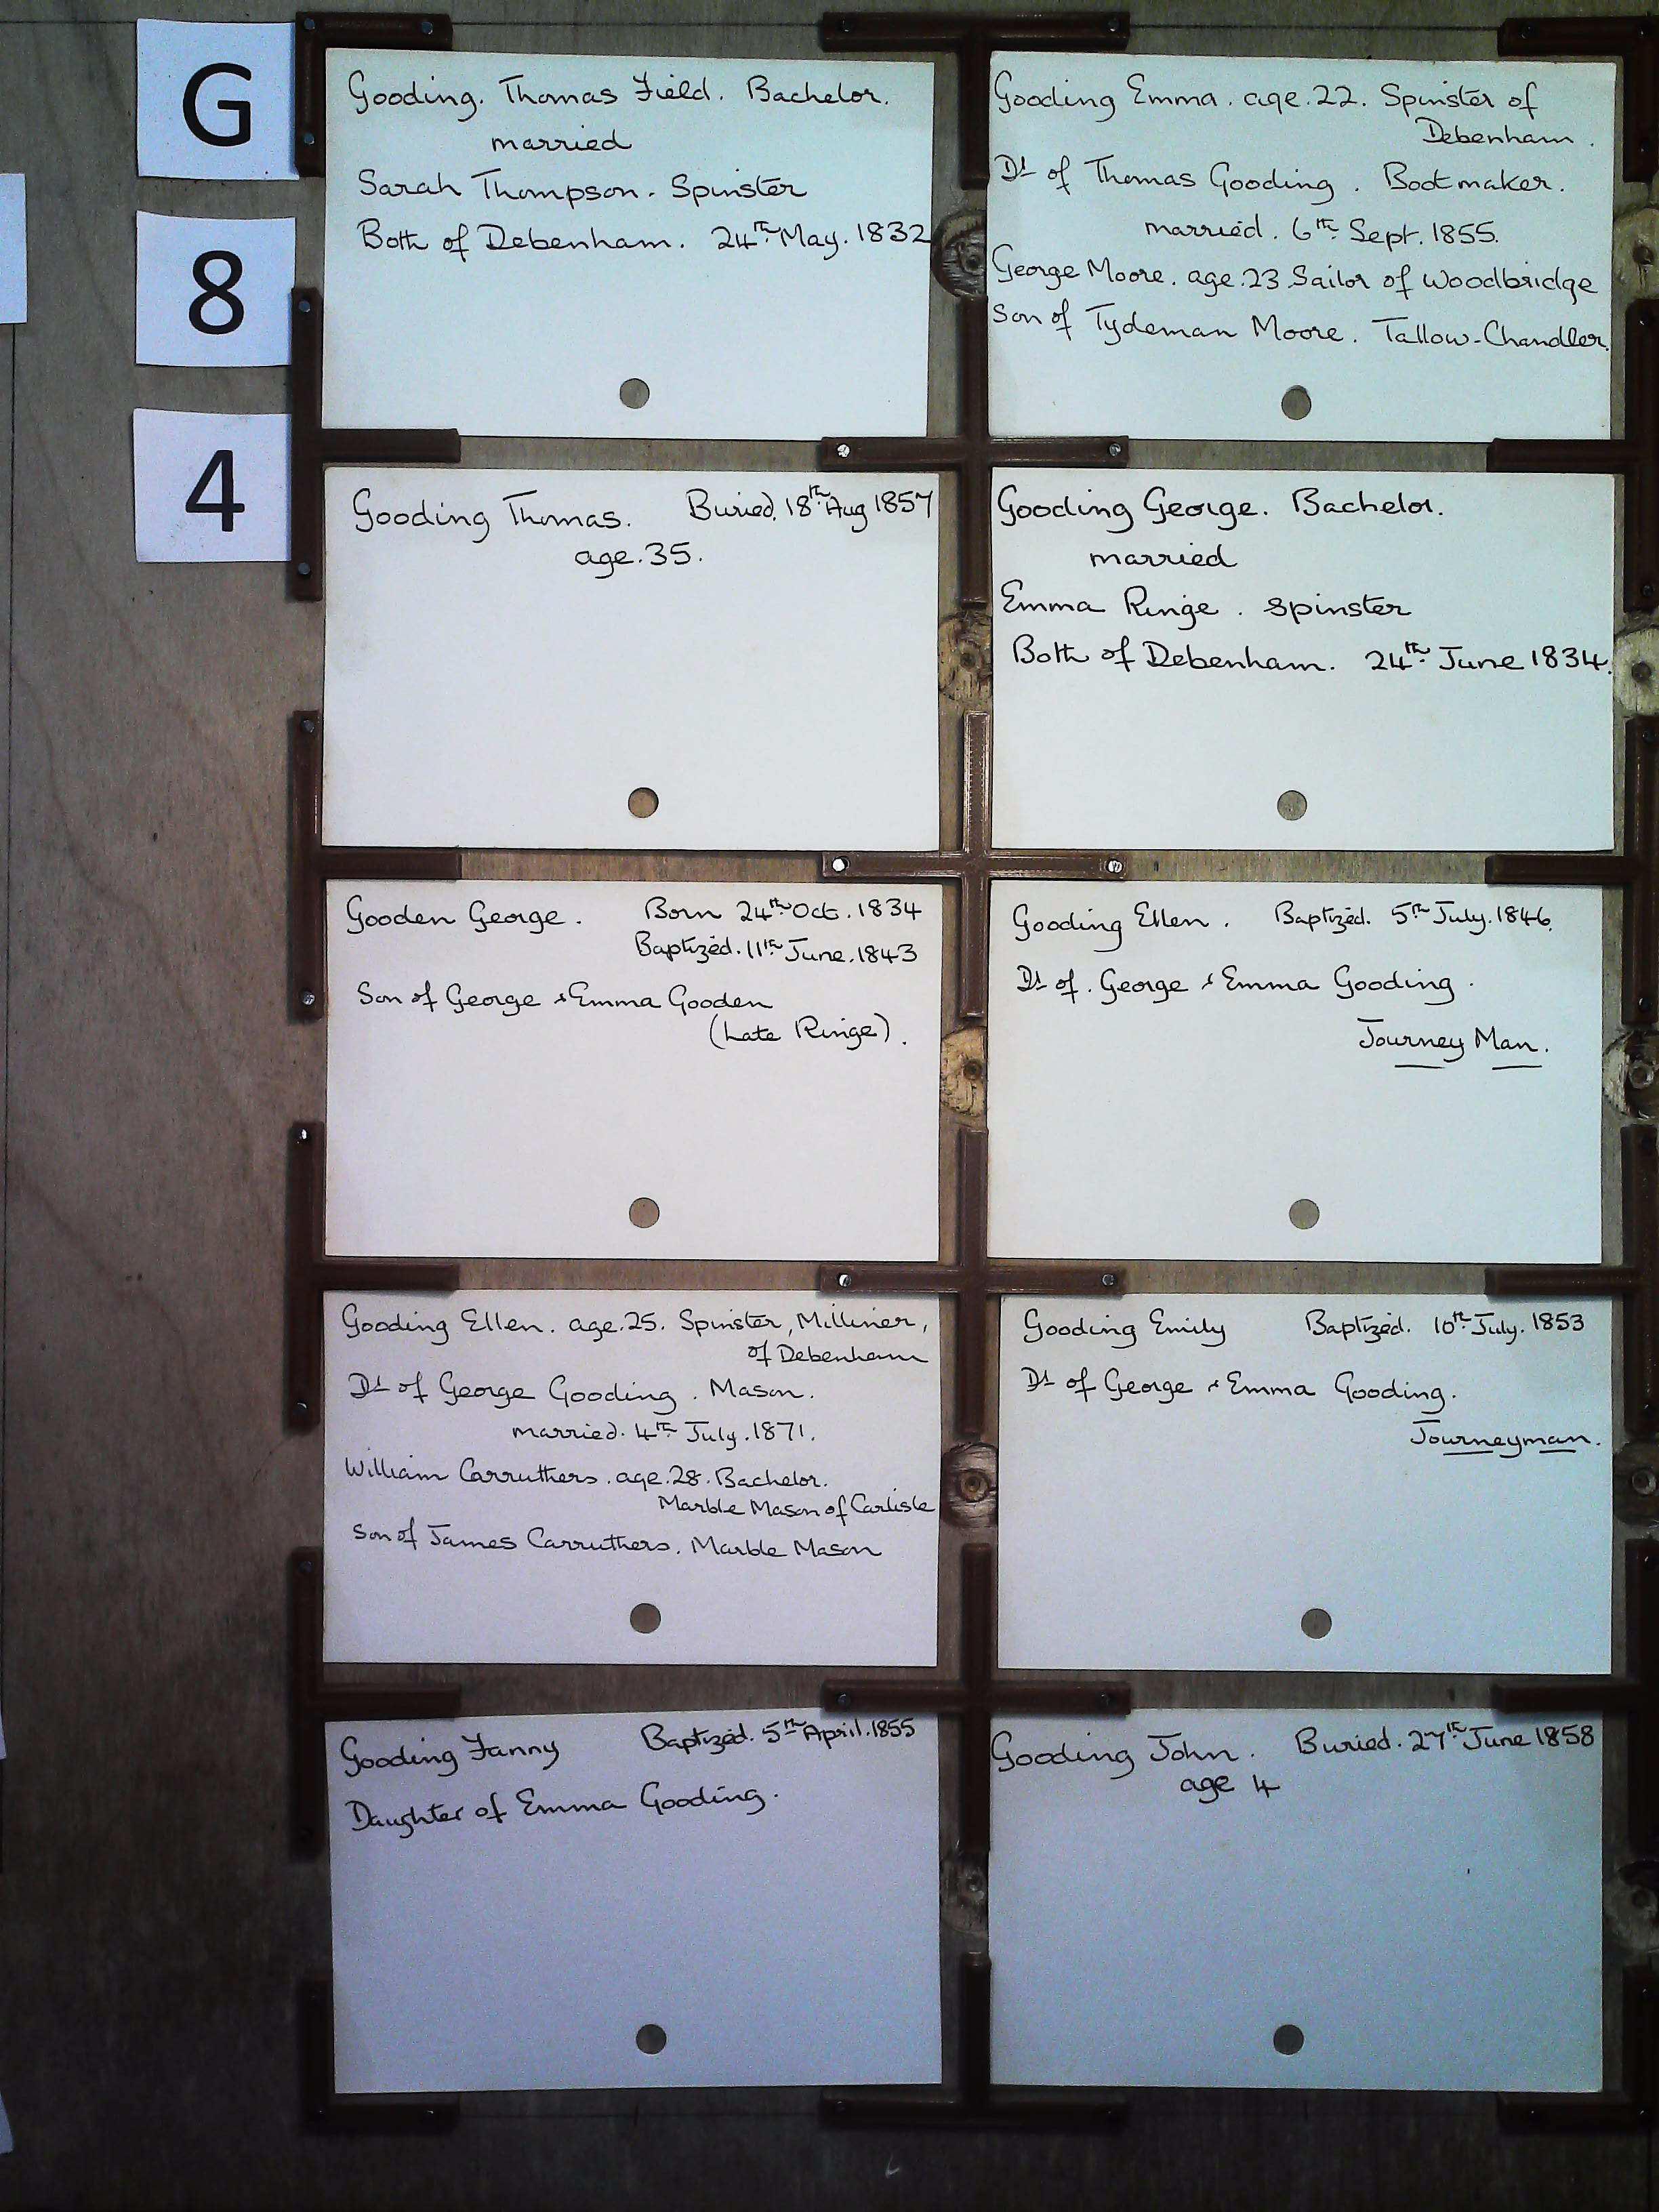 G
8
4
Gooding. Thomas Field. Bachelor.
married
Sarah Thompson. Spinster
Both of Debenham. 24th May. 1832
Gooding Emma. age. 22. Spinster of
Debenham.
Dt of Thomas Gooding. Bootmaker.
married. 6th Sept. 1855.
George Moore. age. 23 Sailor of Woodbridge
Son of Tydeman Moore. Tallow-Chandler.
Gooding Thomas. Buried. 18th Aug 1857
age. 35.
Gooding George. Bachelor.
married
Emma Ringe. Spinster
Both of Debenham. 24th June 1834.
Gooden George. Born 24th Oct. 1834
Baptized. 11th June. 1843
Son of George & Emma Gooden
(Late Ringe).
Gooding Ellen. Baptized. 5th July. 1846.
Dt of. George & Emma Gooding.
Journey Man.
Gooding Ellen. age. 25. Spinster, Milliner,
of Debenham
Dt of George Gooding. Mason.
married. 4th July. 1871.
William Carruthers. age. 28. Bachelor.
Marble Mason of Carlisle
Son of James Carruthers. Marble Mason
Gooding Emily Baptized. 10th July. 1853
Dt of George & Emma Gooding.
Journeyman.
Gooding Fanny Baptized. 5th April. 1855
Daughter of Emma Gooding.
Gooding John. Buried. 27th June 1858
age 4